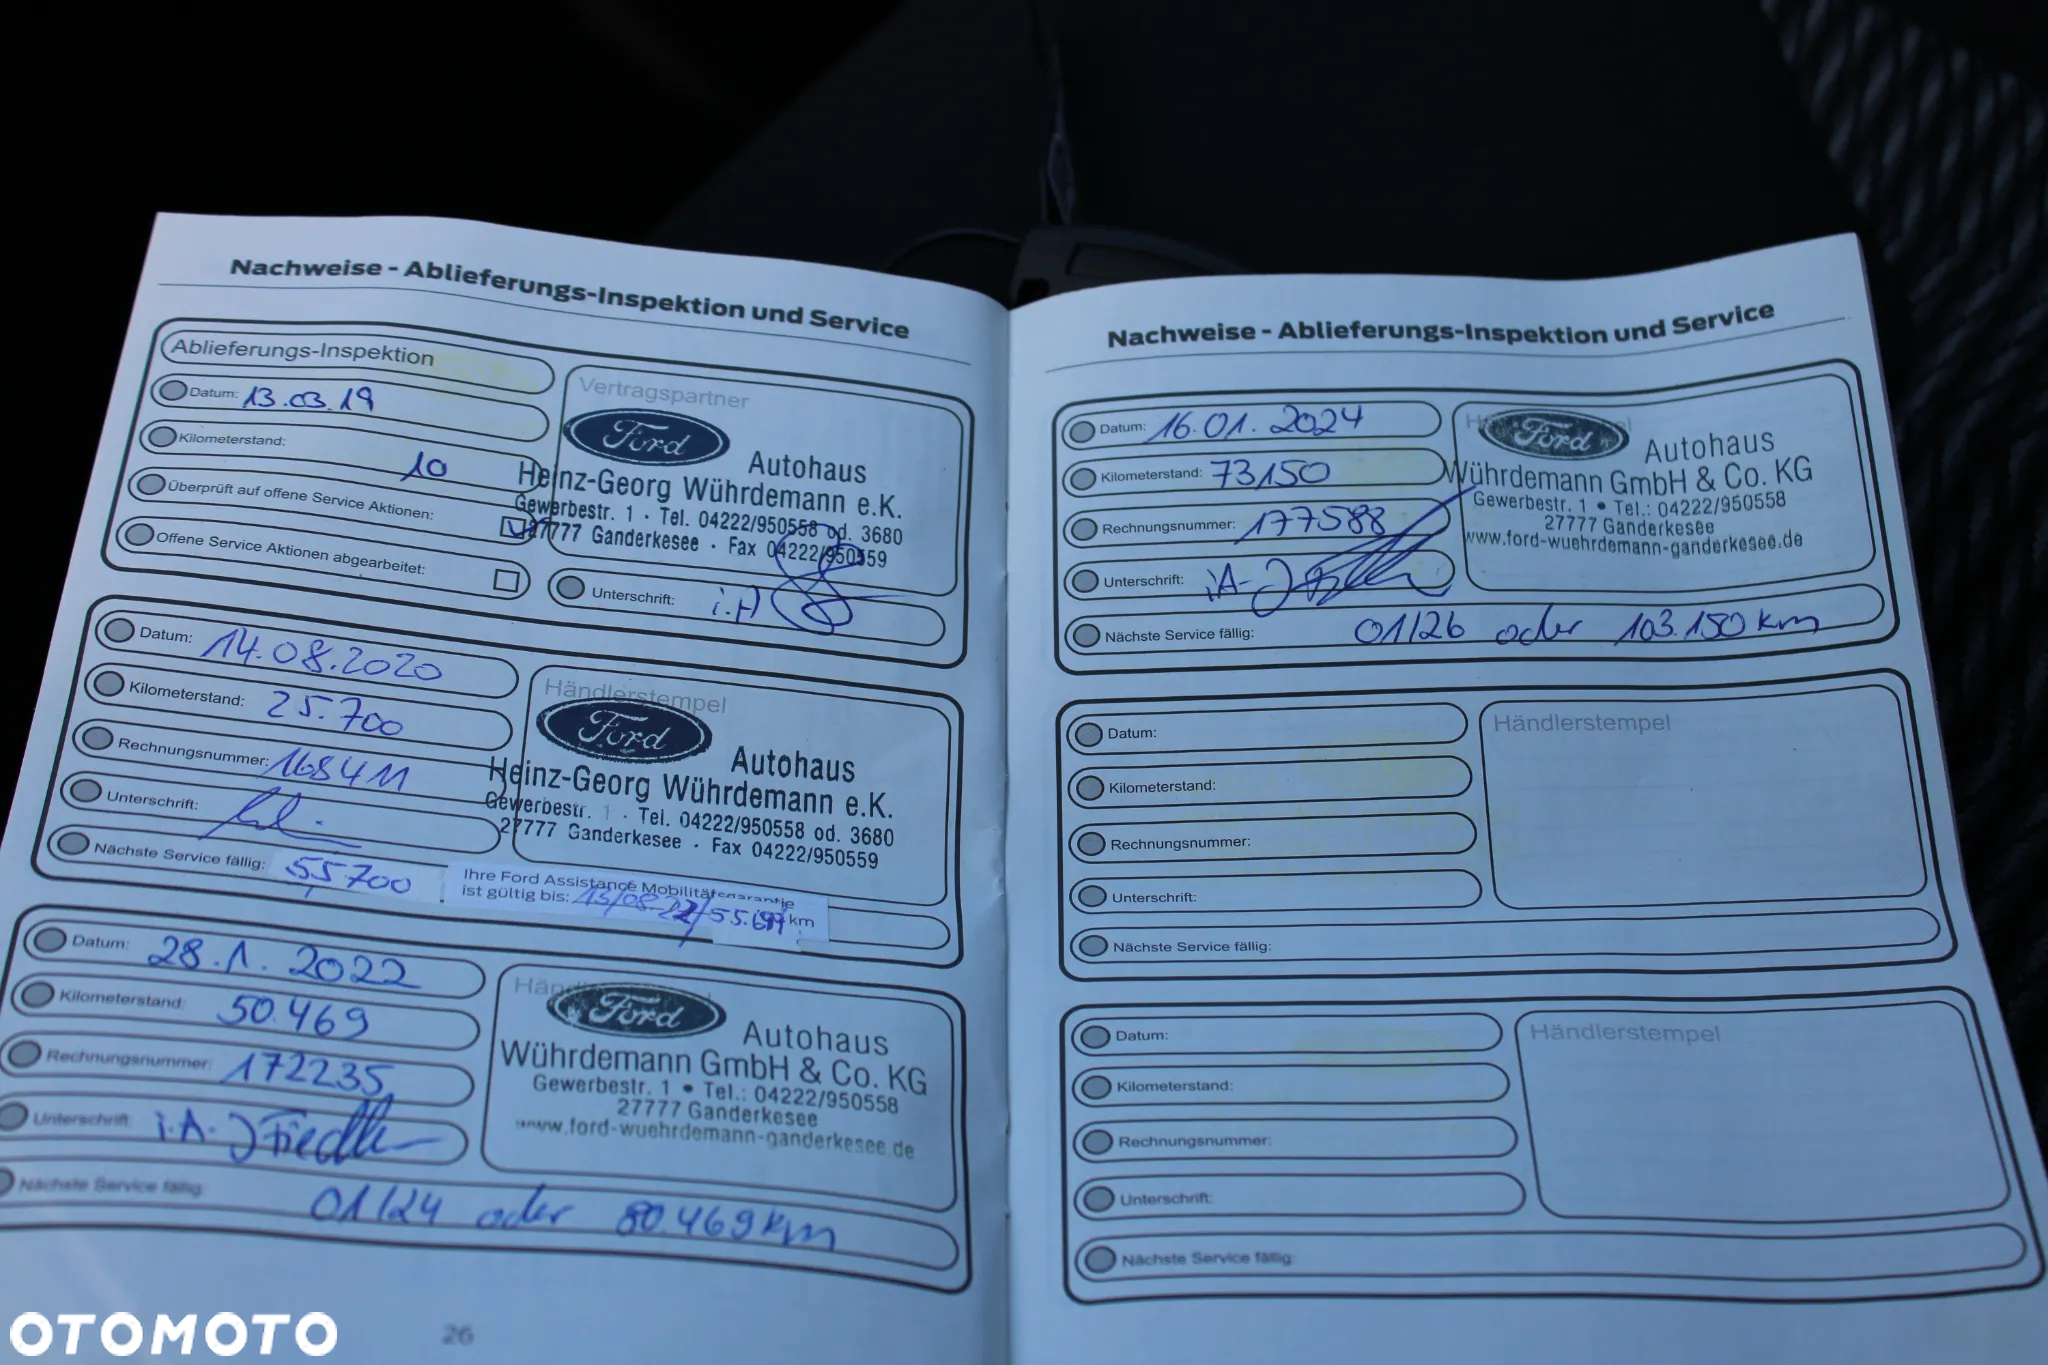 Nachweise - Ablieferungs-Inspektion und Service
Ablieferungs-Inspektion
Datum: 13.03.19
Kilometerstand: 10
Überprüft auf offene Service Aktionen:
Offene Service Aktionen abgearbeitet:
Vertragspartner
Ford
Autohaus
Heinz-Georg Wührdemann e.K.
Gewerbestr. 1 · Tel. 04222/950558 od. 3680
27777 Ganderkesee · Fax 04222/950559
Unterschrift: i.A
Datum: 14.08.2020
Kilometerstand: 25.700
Rechnungsnummer: 168411
Unterschrift:
Nächste Service fällig: 55.700
Händlerstempel
Ford
Autohaus
Heinz-Georg Wührdemann e.K.
Gewerbestr. 1 · Tel. 04222/950558 od. 3680
27777 Ganderkesee · Fax 04222/950559
Ihre Ford Assistance Mobilitätsgarantie
ist gültig bis: km
Datum: 28.1.2022
Kilometerstand: 50.469
Rechnungsnummer: 172235
Unterschrift: i.A.
Nächste Service fällig: 01/24 oder 80.469km
Ford
Autohaus
Wührdemann GmbH & Co. KG
Gewerbestr. 1 • Tel.: 04222/950558
27777 Ganderkesee
www.ford-wuehrdemann-ganderkesee.de
26
Nachweise - Ablieferungs-Inspektion und Service
Datum: 16.01.2024
Kilometerstand: 73150
Rechnungsnummer: 177588
Unterschrift: iA
Nächste Service fällig: 01/26 oder 103.150km
Ford
Autohaus
Wührdemann GmbH & Co. KG
Gewerbestr. 1 • Tel.: 04222/950558
27777 Ganderkesee
www.ford-wuehrdemann-ganderkesee.de
Datum:
Kilometerstand:
Rechnungsnummer:
Unterschrift:
Nächste Service fällig:
Händlerstempel
Datum:
Kilometerstand:
Rechnungsnummer:
Unterschrift:
Nächste Service fällig:
Händlerstempel
OTOMOTO